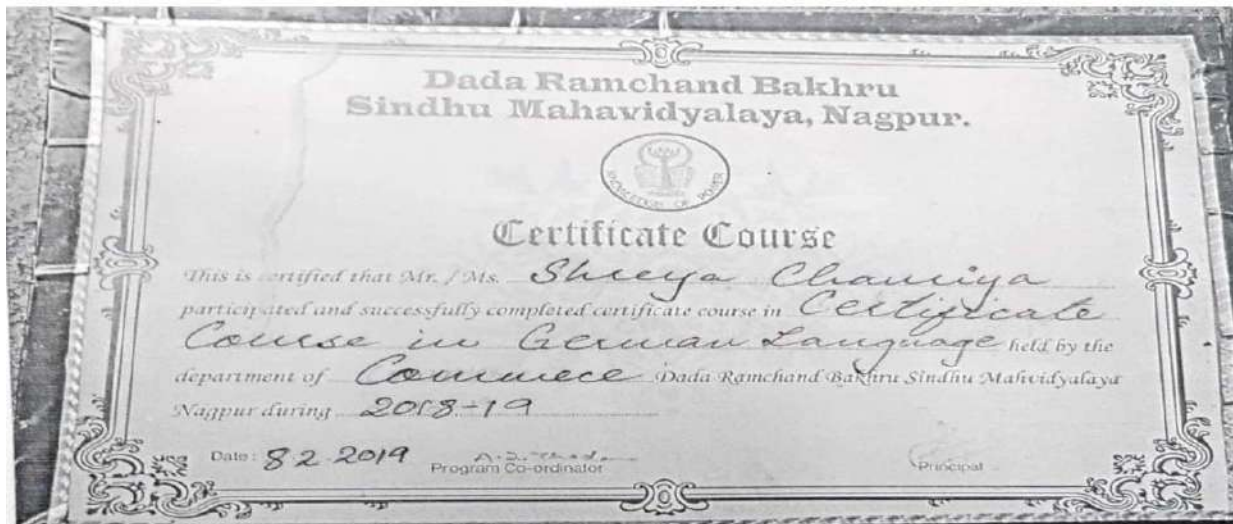 Dada Ramchand Bakhru
Sindhu Mahavidyalaya, Nagpur.
KNOWLEDGE IS POWER
Certificate Course
This is certified that Mr. / Ms. Shreya
participated and successfully completed certificate course in Certificate
Course in German Language held by the
department of Commece Dada Ramchand Bakhru Sindhu Mahvidyalaya
Nagpur during 2018-19
Date : 8 2 2019
Program Co-ordinator
Principal